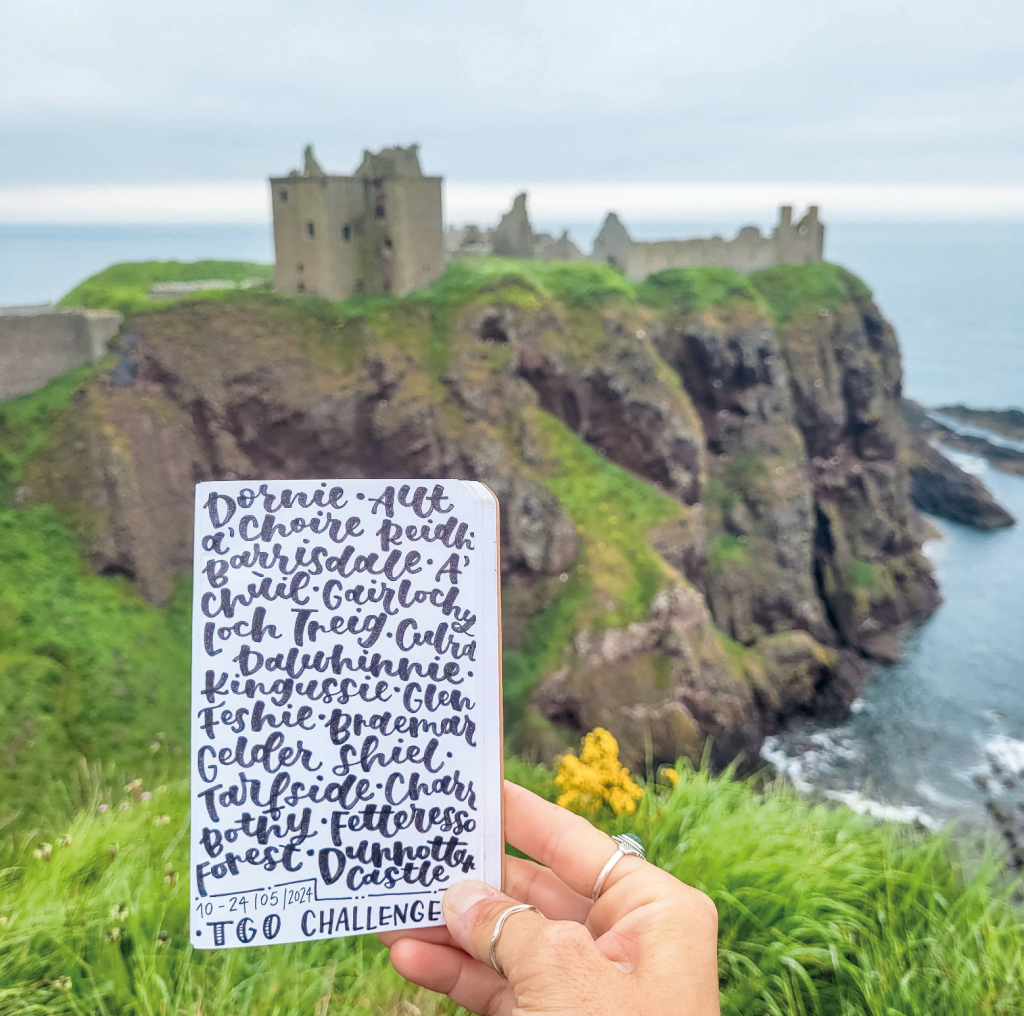 Dornie · Allt
a' Choire Reidh
Barrisdale · A'
Chùil · Gairlochy
Loch Treig · Culra
Dalwhinnie ·
Kingussie · Glen
Feshie · Braemar
Gelder Shiel ·
Tarfside · Charr
Bothy · Fetteresso
Forest · Dunnottar
Castle
10 - 24 | 05 | 2024
· TGO CHALLENGE